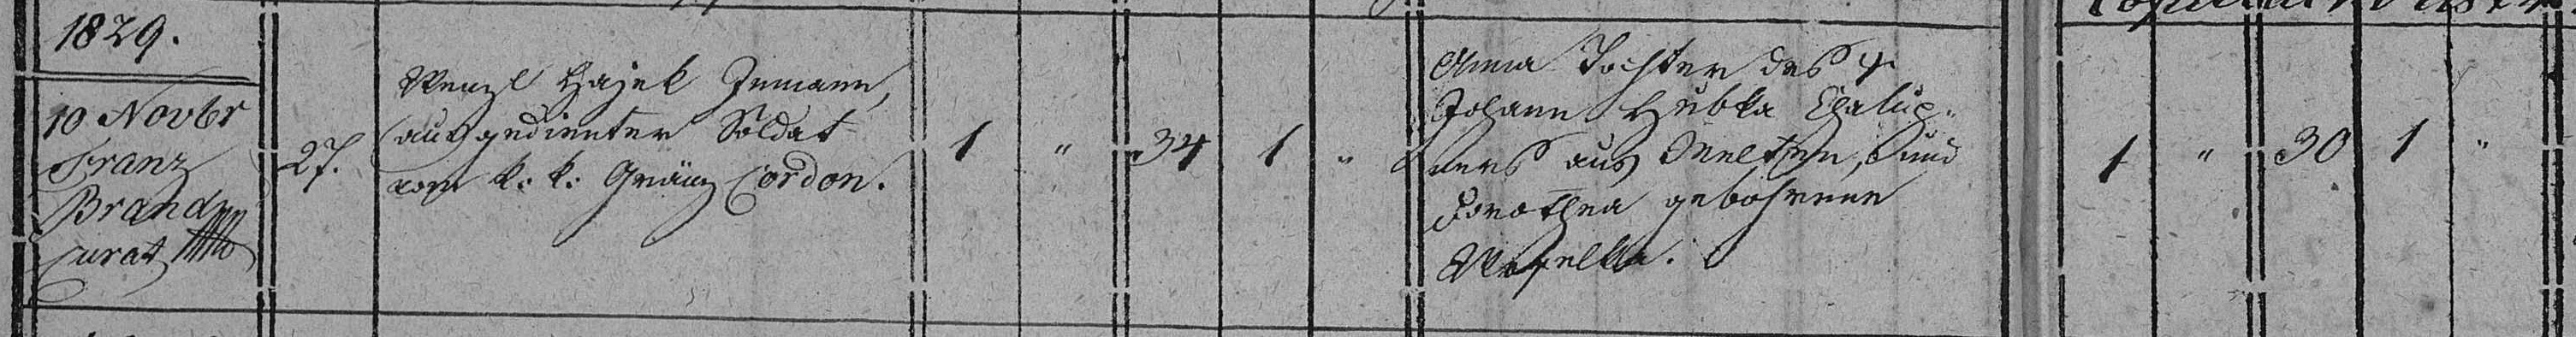 1829.
10 Novbr
Franz
Brand
Curat
27.
Wenzl Hajek Inmann,
ausgedienter Soldat
vom k. k. Gränz Cordon.
1 " 34 1 "
Anna Tochter des †
Johann Hubka Chalup-
ners aus Meltsch, und
Dorothea gebohrene
1 " 30 1 "